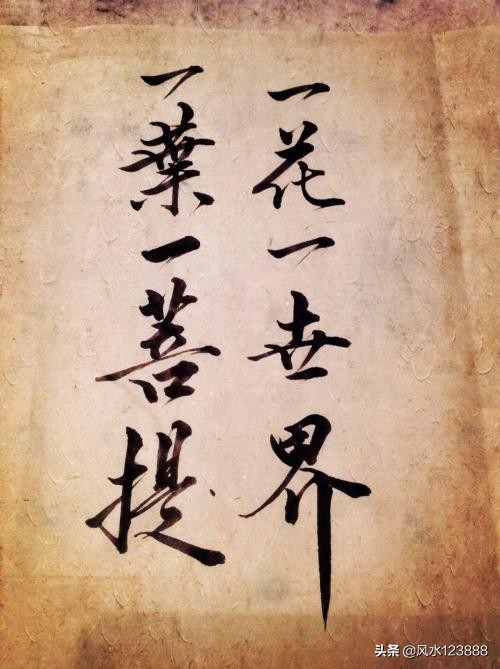 一花一世界
一葉一菩提
头条 @风水123888